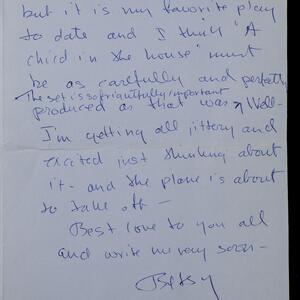 but it is my favorite play
to date and I think "A
child in the house" must
be as carefully and perfectly
The set is so frightfully important
produced as that was. Well-
I'm getting all jittery and
excited just thinking about
it - and the plane is about
to take off -
Best love to you all
and write me very soon -
Betsy